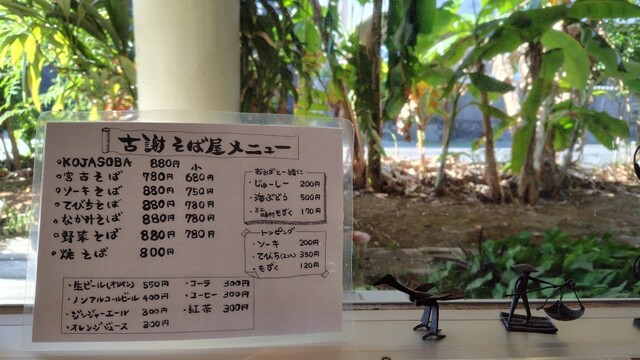 古謝そば屋メニュー
○KOJASOBA 880円 小
○宮古そば 780円 680円
○ソーキそば 880円 750円
○てびちそば 880円 780円
○なかみそば 880円 780円
○野菜そば 880円 780円
○焼そば 800円
おそばと一緒に
・じゅーしー 200円
・海ぶどう 500円
・ミニ味付もずく 170円
トッピング
・ソーキ 200円
・てびち(2コ) 350円
・もずく 120円
・生ビール(オリオン) 550円
・ノンアルコールビール 400円
・ジンジャーエール 300円
・オレンジジュース 300円
・コーラ 300円
・コーヒー 300円
・紅茶 300円